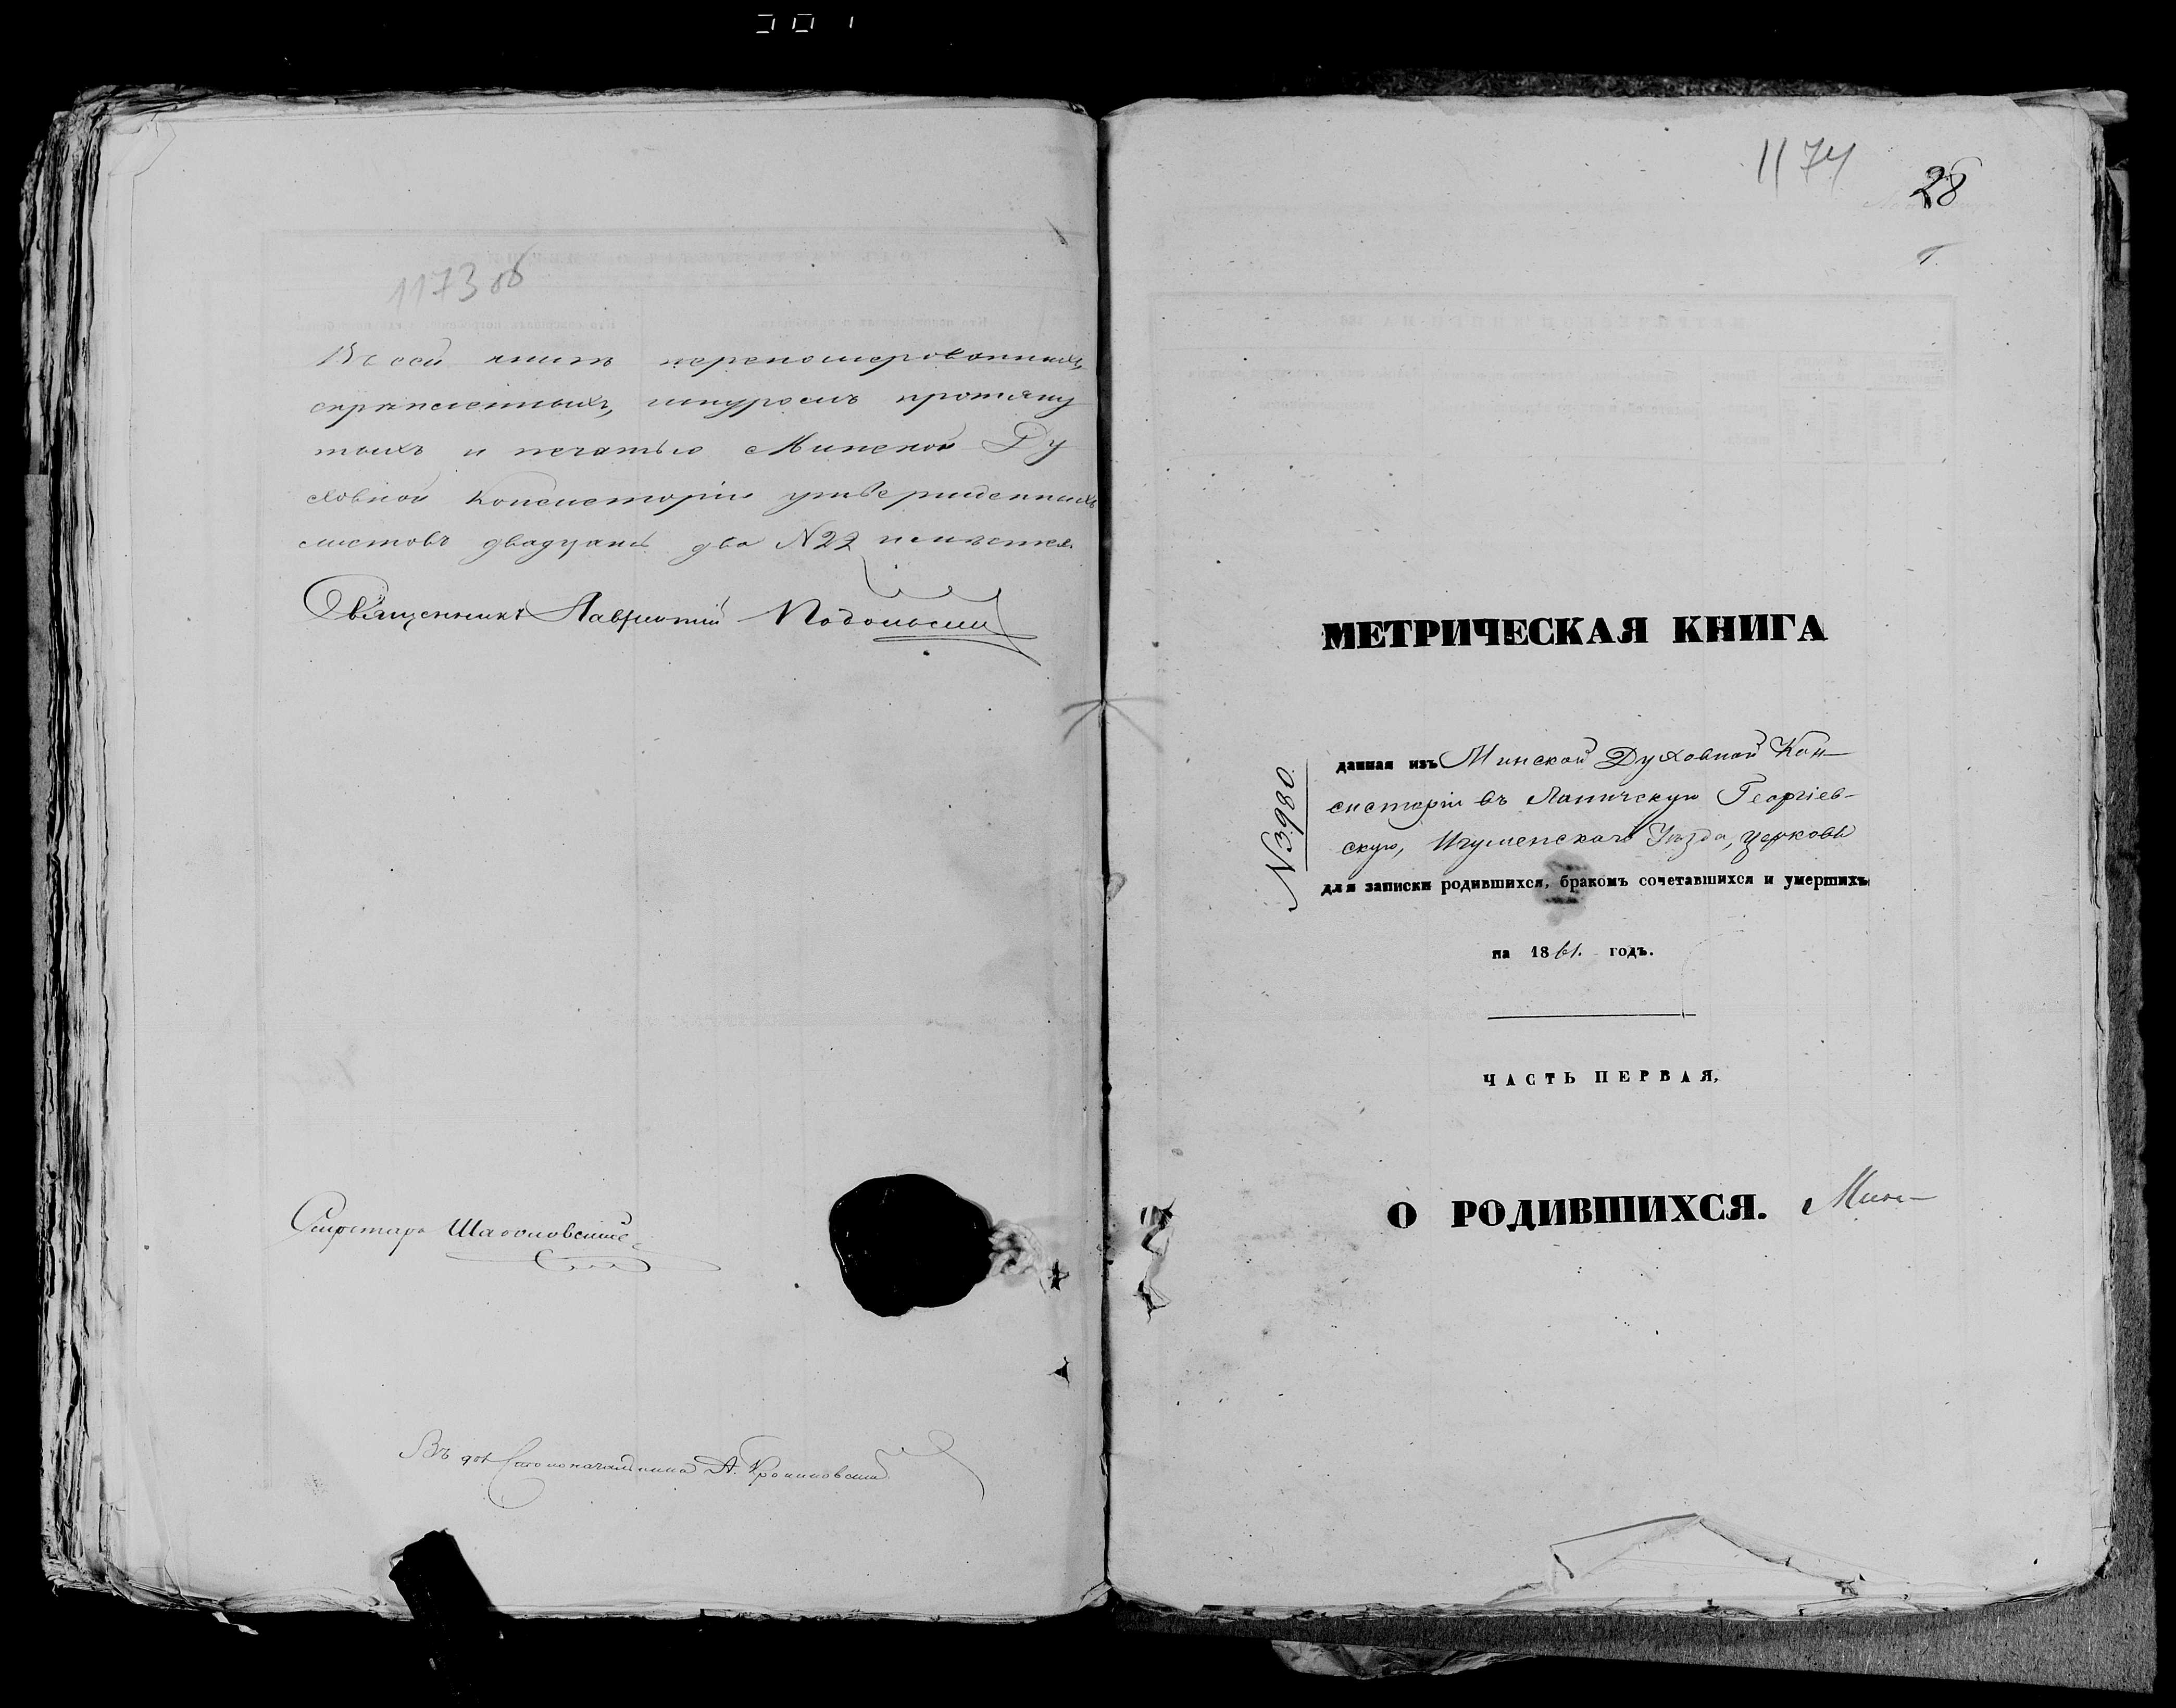 1173 об
Въ сей книгѣ перенумерованныхъ,
скрѣпленныхъ, шнуромъ протяну
тыхъ и печатью Минской Ду
ховной Консисторіи утвержденныхъ
листовъ двадцать два №22 имѣется.
Священникъ Лаврентій Подольскій
Секретарь
Въ дол. Столоначальника А.
1174
28
МЕТРИЧЕСКАЯ КНИГА
№3980.
данная изъ Минской Духовной Кон-
систоріи въ Лапичскую Георгіев-
скую, Игуменскаго Уѣзда, церковь
для записки родившихся, бракомъ сочетавшихся и умершихъ
на 1861. годъ.
ЧАСТЬ ПЕРВАЯ,
О РОДИВШИХСЯ. Мин-